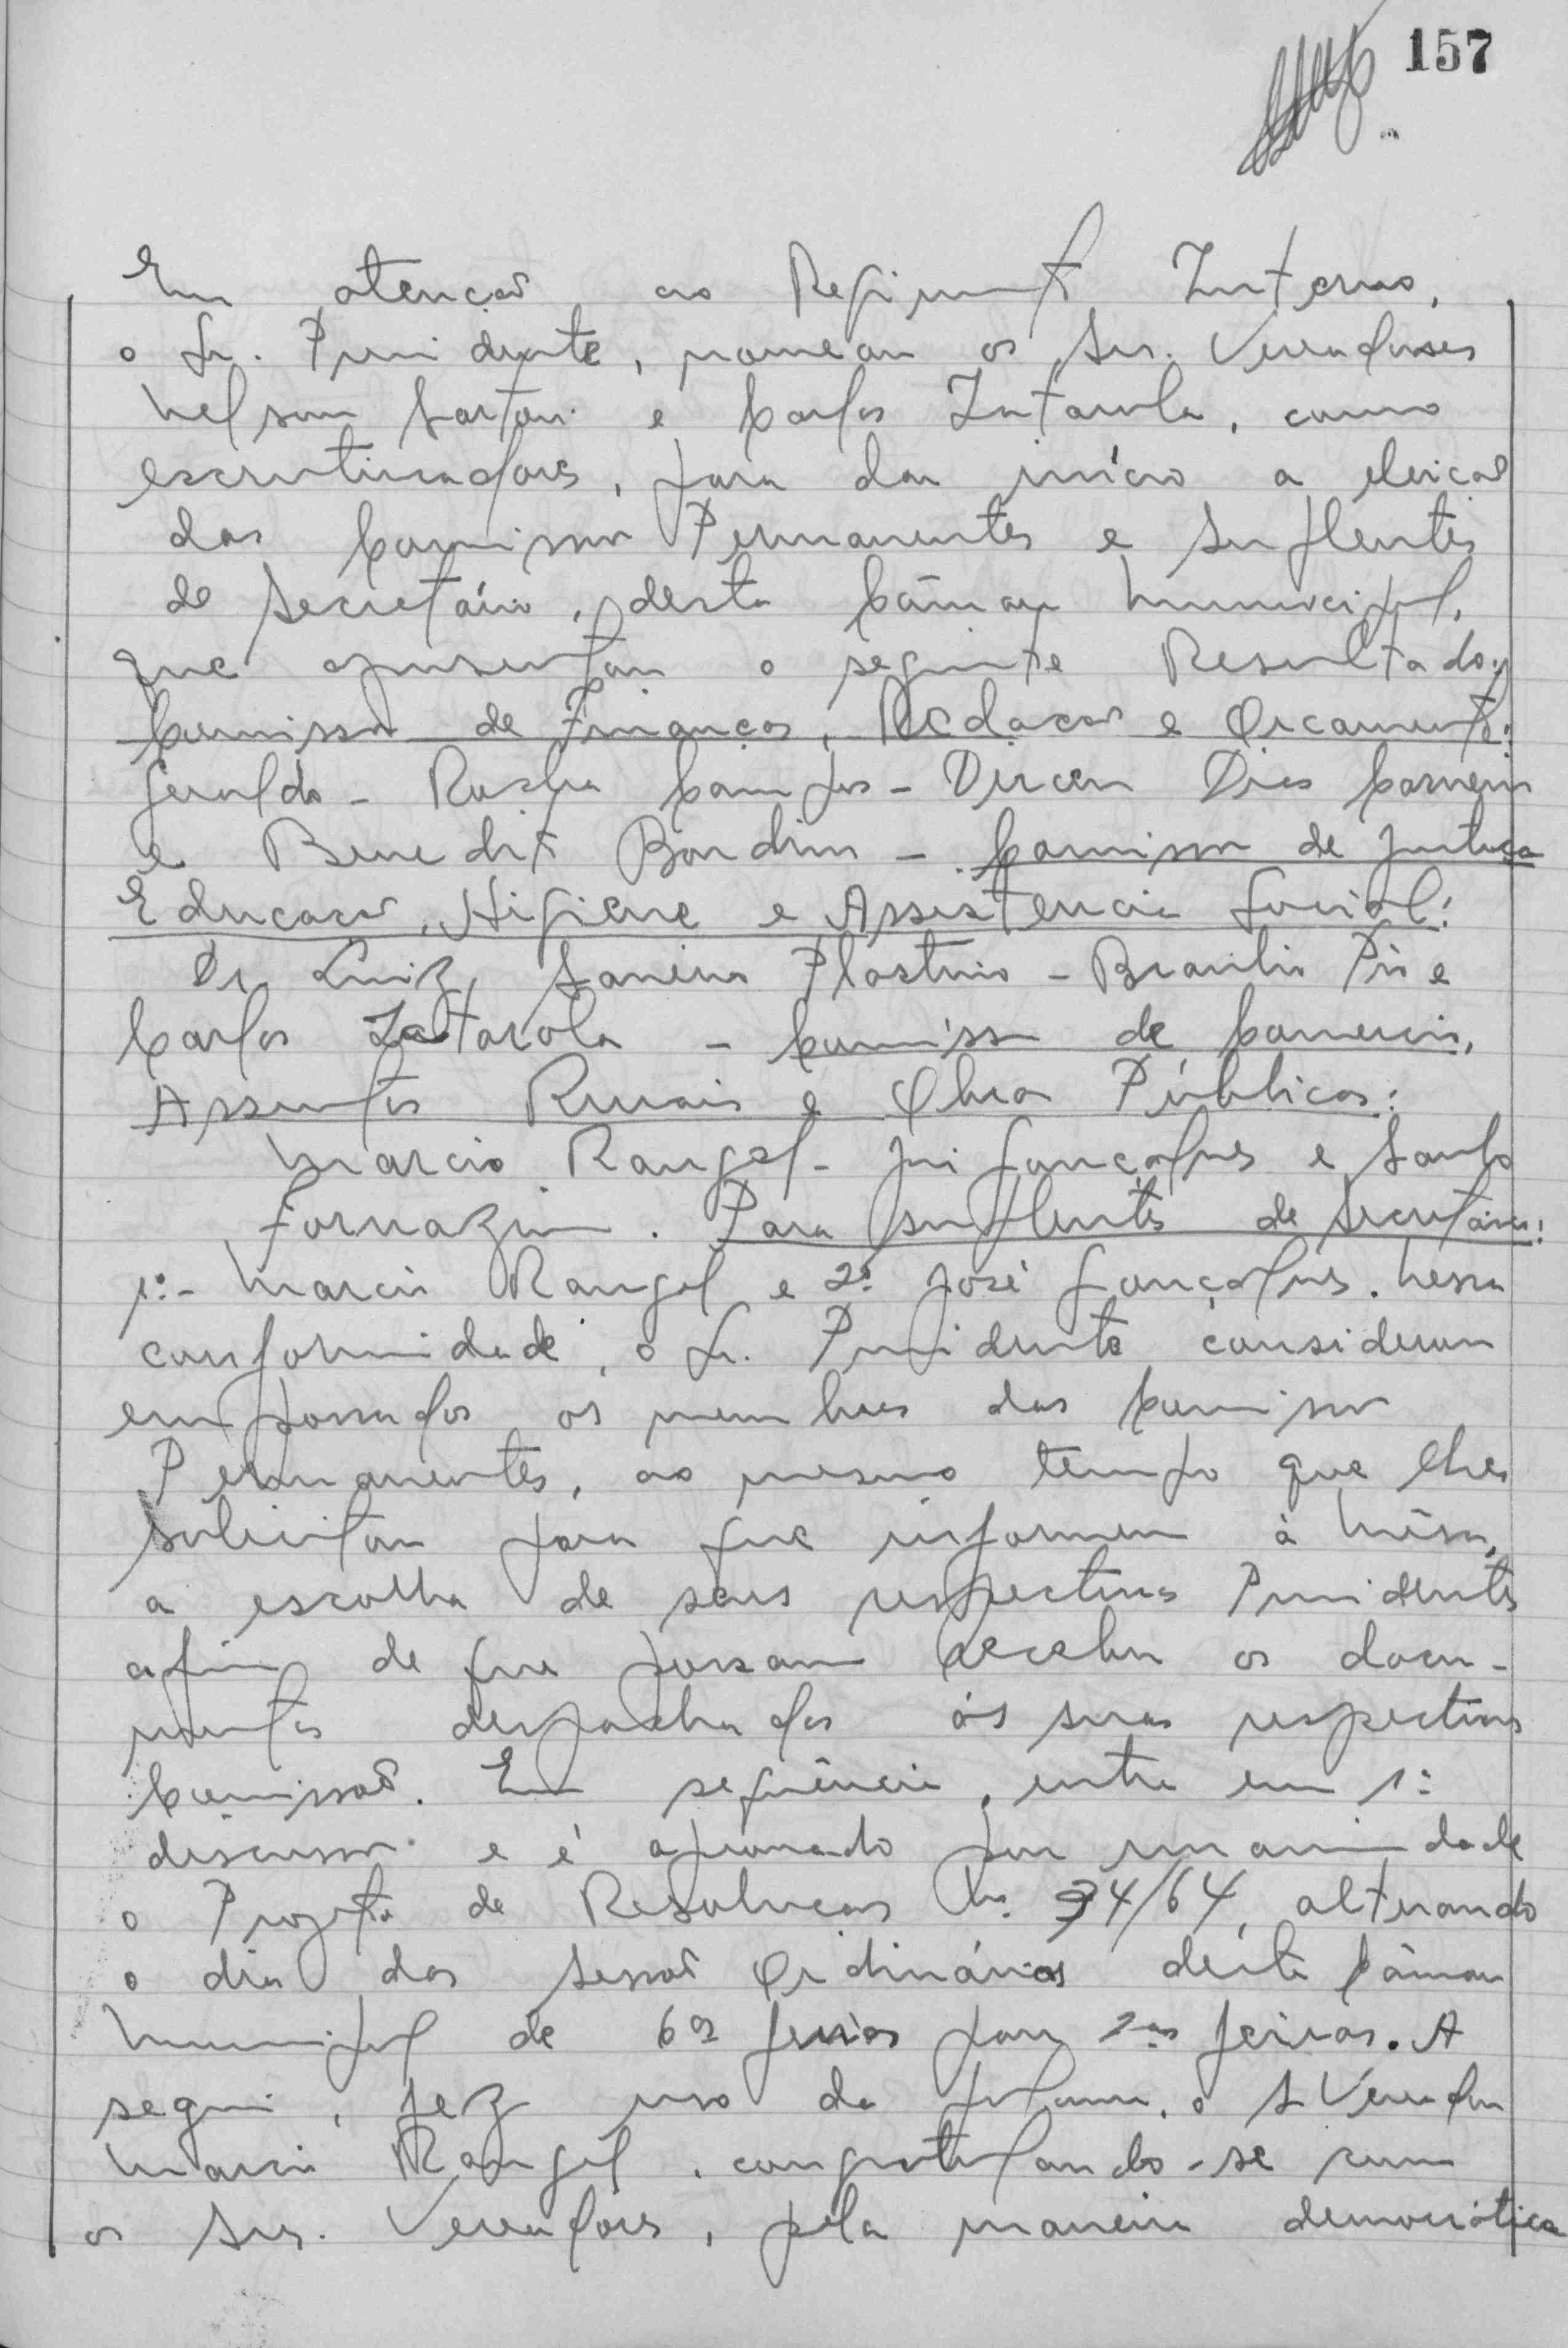 157
Em atenção ao Regimento Interno,
o Sr. Presidente, nomeou os Srs. Vereadores
Nelson Sartori e Carlos Zatarola, como
escrutinadores, para dar início a eleição
das Comissões Permanentes e Suplentes
de Secretário, desta Câmara Municipal,
que apresentou o seguinte Resultado:
Comissão de Finanças, Redação e Orçamento:
Geraldo - Rocha Campos - Dirceu Dias Carneiro
e Benedito Bordim - Comissão de Justiça
Educação, Higiene e Assistencia Social:
Dr. Luiz Plastino - Brasilio Pio e
Carlos Zatarola - Comissão de Comercio,
Assuntos Rurais e Obras Públicas:
Marcio Rangel - José Gonçalves e Santo
Fornazim. Para suplentes de Secretários:
1º - Marcio Rangel e 2º José Gonçalves. Nessa
conformidade, o Sr. Presidente considerou
empossados os membros das Comissões
Permanentes, ao mesmo tempo que lhes
solicitou para que informem à Mêsa,
a escolha de seus respectivos Presidentes
afim de que possam receber os docu-
mentos despachados ás suas respectivas
Comissões. Em seqüência, entra em 1ª
discussão e é aprovado por unanimidade
o Projeto de Resolução Nº 34/64, alterando
o dia das sessões Ordinárias desta Câmara
Municipal de 6as feiras para 2as feiras. A
seguir, fez uso da palavra, o Sr Vereador
Marcio Rangel, congratulando-se com
os Srs. Vereadores, pela maneira democrática